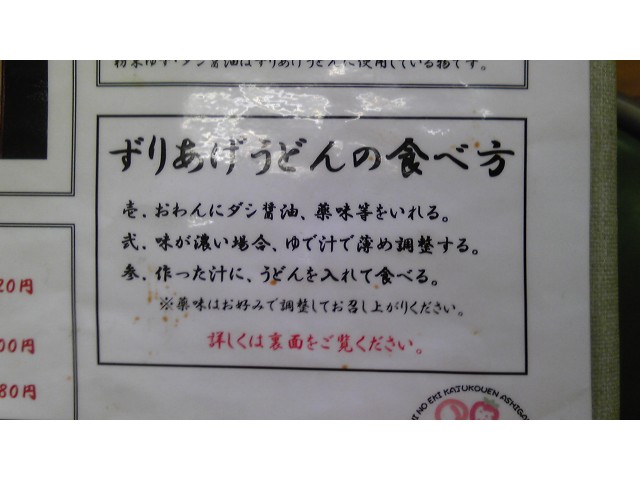 粉末ゆず・ダシ醤油はずりあげうどんに使用している物です。
ずりあげうどんの食べ方
壱、おわんにダシ醤油、薬味等をいれる。
弐、味が濃い場合、ゆで汁で薄め調整する。
参、作った汁に、うどんを入れて食べる。
※薬味はお好みで調整してお召し上がりください。
詳しくは裏面をご覧ください。
20円
00円
80円
NO EKI KAJUKOUEN ASHIGA